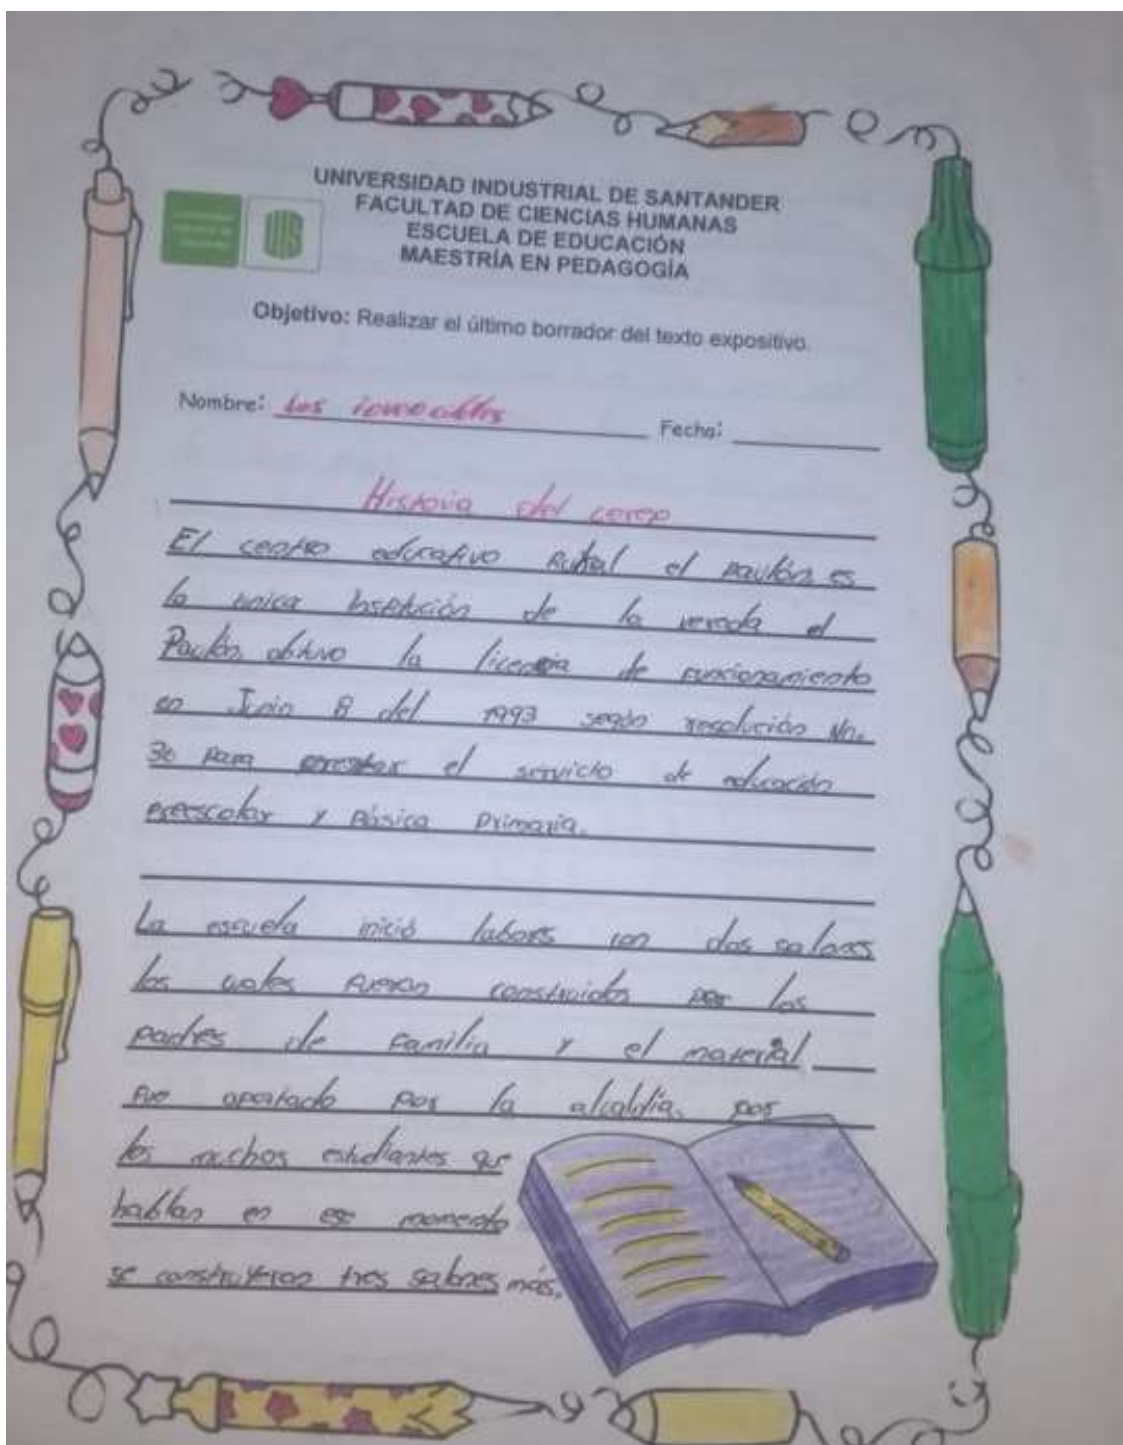 UNIVERSIDAD INDUSTRIAL DE SANTANDER
FACULTAD DE CIENCIAS HUMANAS
ESCUELA DE EDUCACIÓN
MAESTRÍA EN PEDAGOGÍA
Objetivo: Realizar el último borrador del texto expositivo.
Nombre: Los Fecha:
Historia del cerep
El centro educativo Rural el paulón es
la unica Institución de la vereda el
Paulón, obtuvo la licencia de funcionamiento
en Junio 8 del 1993 según resolución No.
36 para prestar el servicio de educación
preescolar y Básica primaria.
La escuela inició labors con dos salones
los cuales fueron construidos por los
padres de familia y el material
fue aportado por la alcaldía, por
los muchos estudiantes que
habían en ese momento
se construyeron tres salones más.